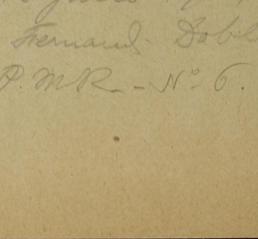 Fernand Dobel
P.M.R. - N° 6.